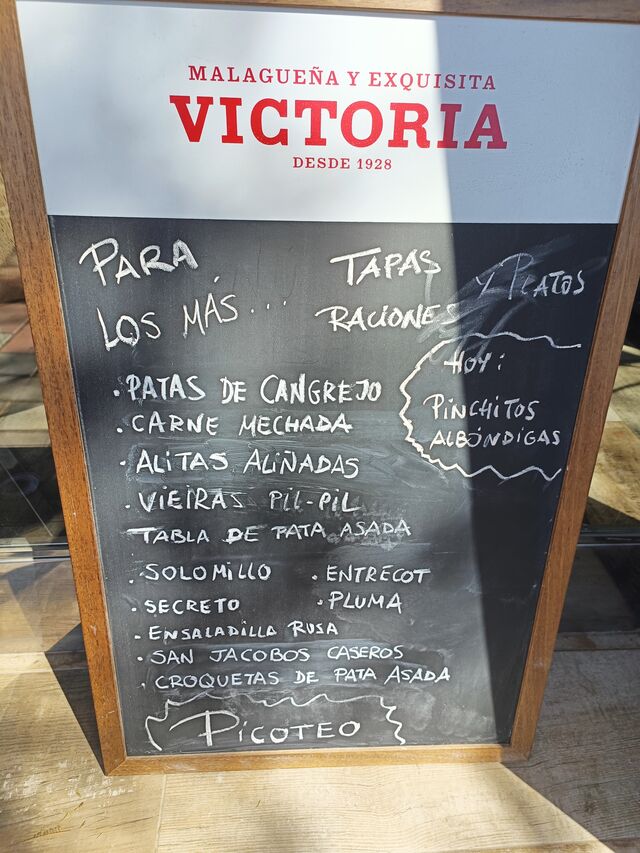 MALAGUEÑA Y EXQUISITA
VICTORIA
DESDE 1928
PARA
LOS MÁS...
TAPAS Y PLATOS
RACIONES
HOY:
PINCHITOS
ALBÓNDIGAS
. PATAS DE CANGREJO
. CARNE MECHADA
. ALITAS ALIÑADAS
. VIEIRAS PIL-PIL
TABLA DE PATA ASADA
. SOLOMILLO . ENTRECOT
. SECRETO . PLUMA
. ENSALADILLA RUSA
. SAN JACOBOS CASEROS
. CROQUETAS DE PATA ASADA
PICOTEO